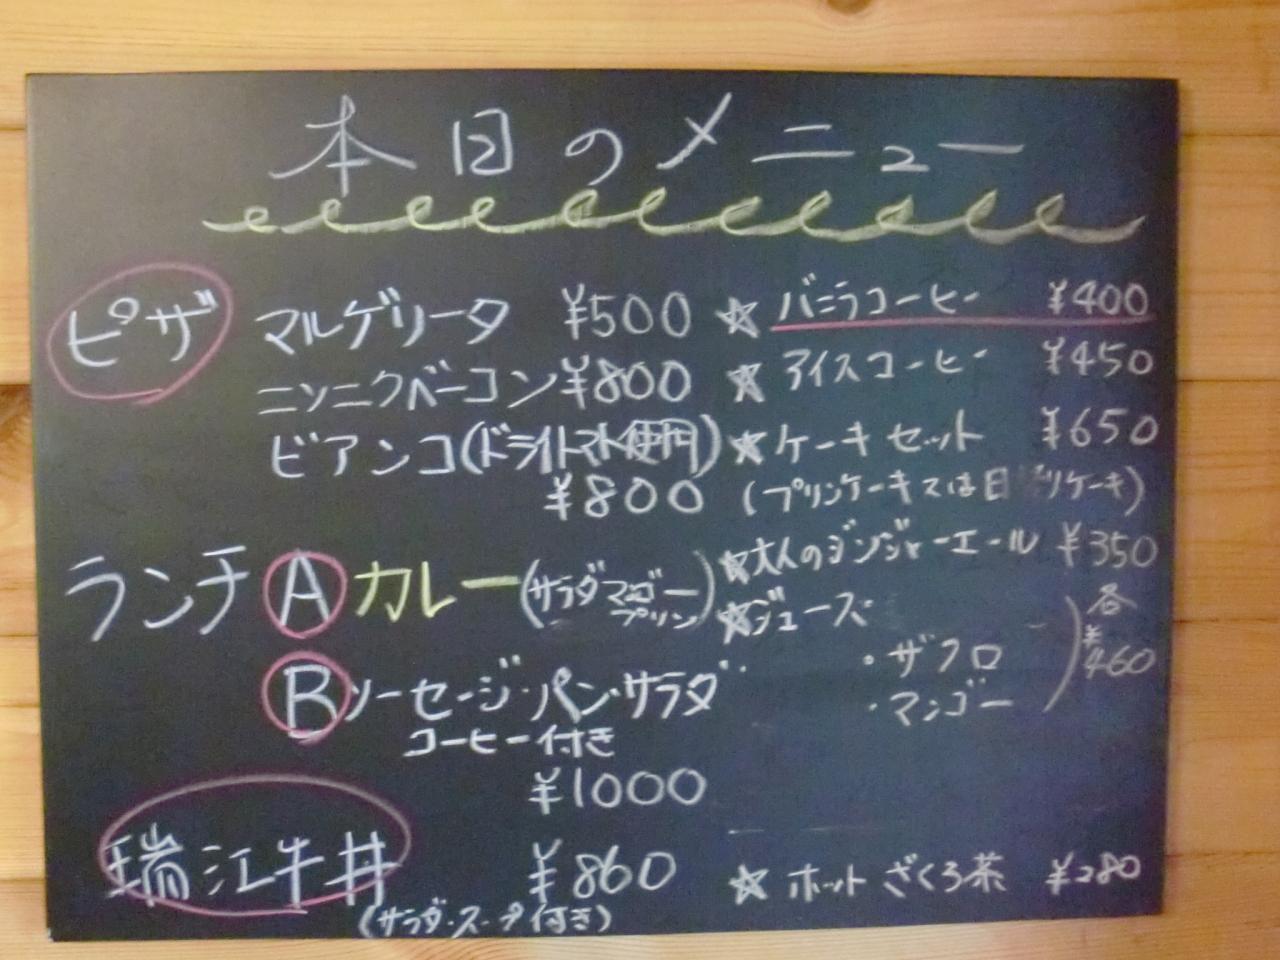 本日のメニュー
ピザ マルゲリータ ¥500
ニンニクベーコン ¥800
ビアンコ(ドライトマト使用)
¥800
ランチ Ⓐ カレー(サラダマンゴープリン)
Ⓑ ソーセージ・パン・サラダ
コーヒー付き
¥1000
瑞江牛丼 ¥860
(サラダ・スープ付き)
☆ バニラコーヒー ¥400
☆ アイスコーヒー ¥450
☆ ケーキセット ¥650
(プリンケーキ又は日 リケーキ)
☆ 大人のジンジャーエール ¥350
☆ ジュース 各
・ザクロ ¥460
・マンゴー
☆ ホットざくろ茶 ¥280